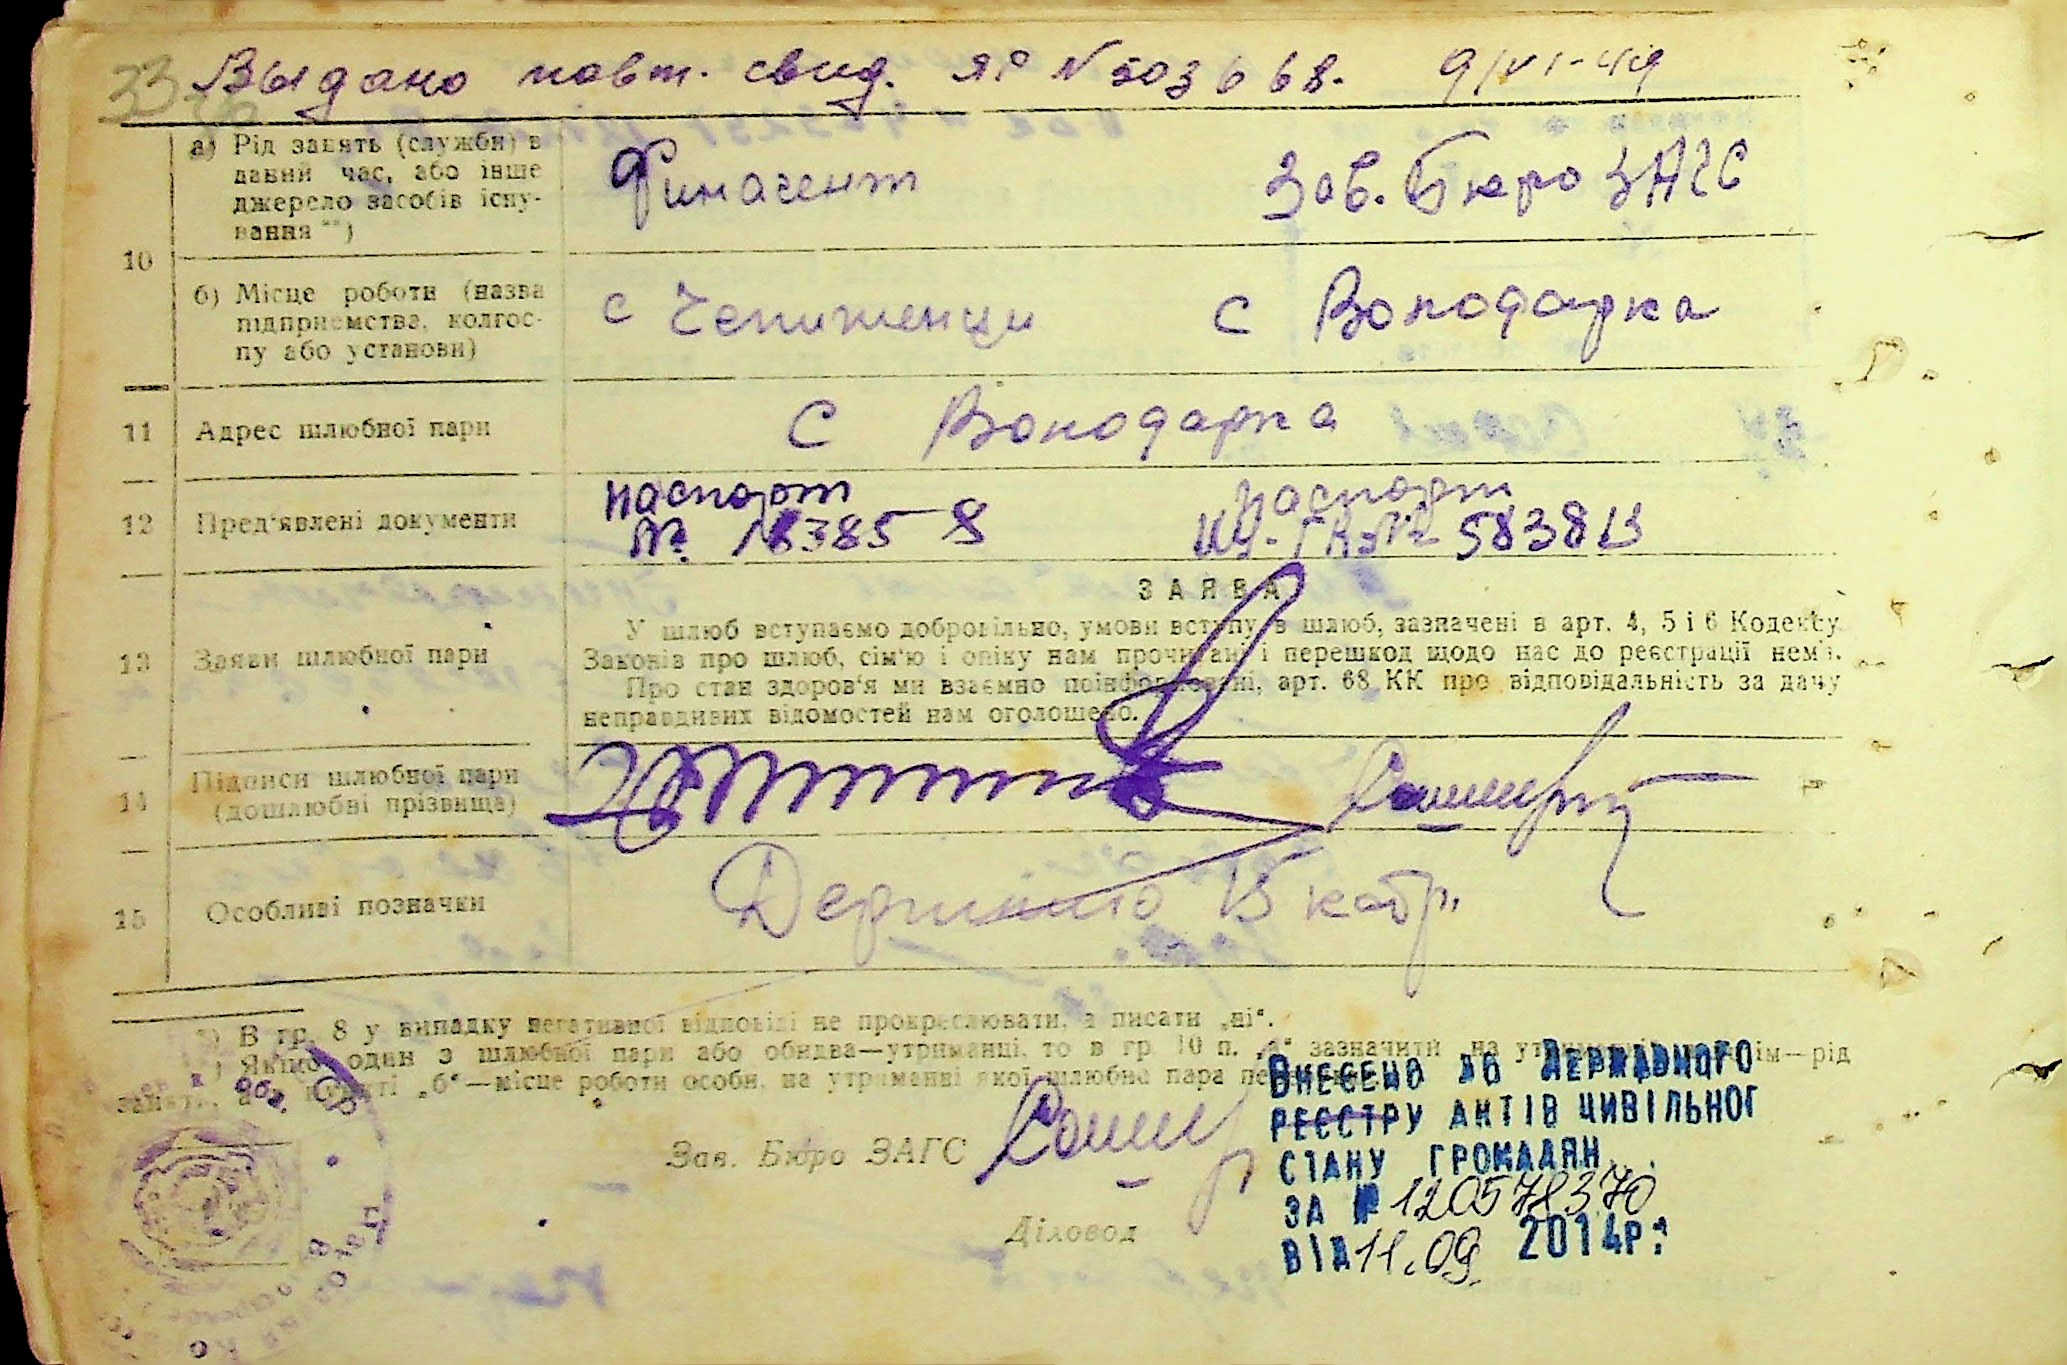 Выдано повт. свид. ЯР N 503668. 9/VI-49
а) Рід занять (служби) в
даний час, або інше
джерело засобів існу-
вання **)
Финагент Зав. Бюро ЗАГС
10
б) Місце роботи (назва
підприємства, колгос-
пу або установи)
с Чепиженци с Володарка
11 Адрес шлюбної пари с Володарка
12 Пред'явлені документи
паспорт паспорт
№ 583813
ЗАЯВА
13 Заяви шлюбної пари
У шлюб вступаємо добровільно, умови вступу в шлюб, зазначені в арт. 4, 5 і 6 Кодексу
Законів про шлюб, сім'ю і опіку нам прочитані і перешкод щодо нас до реєстрації нема.
Про стан здоров'я ми взаємно поінформовані, арт. 68 КК про відповідальність за дачу
неправдивих відомостей нам оголошено.
14 Підписи шлюбної пари
(дошлюбні прізвища)
15 Особливі позначки
*) В гр. 8 у випадку негативної відповіді не прокреслювати, а писати „ні“.
Якщо один з шлюбної пари або обидва—утриманці, то в гр. 10 п. „а“ зазначити на
„б“—місце роботи особи, на утриманні якої шлюбна пара
Зав. Бюро ЗАГС
Діловод
ВНЕСЕНО ДО ДЕРЖАВНОГО
РЕЄСТРУ АКТІВ ЦИВІЛЬНОГ
СТАНУ ГРОМАДЯН
ЗА № 120578370
ВІД 11.09 2014р.